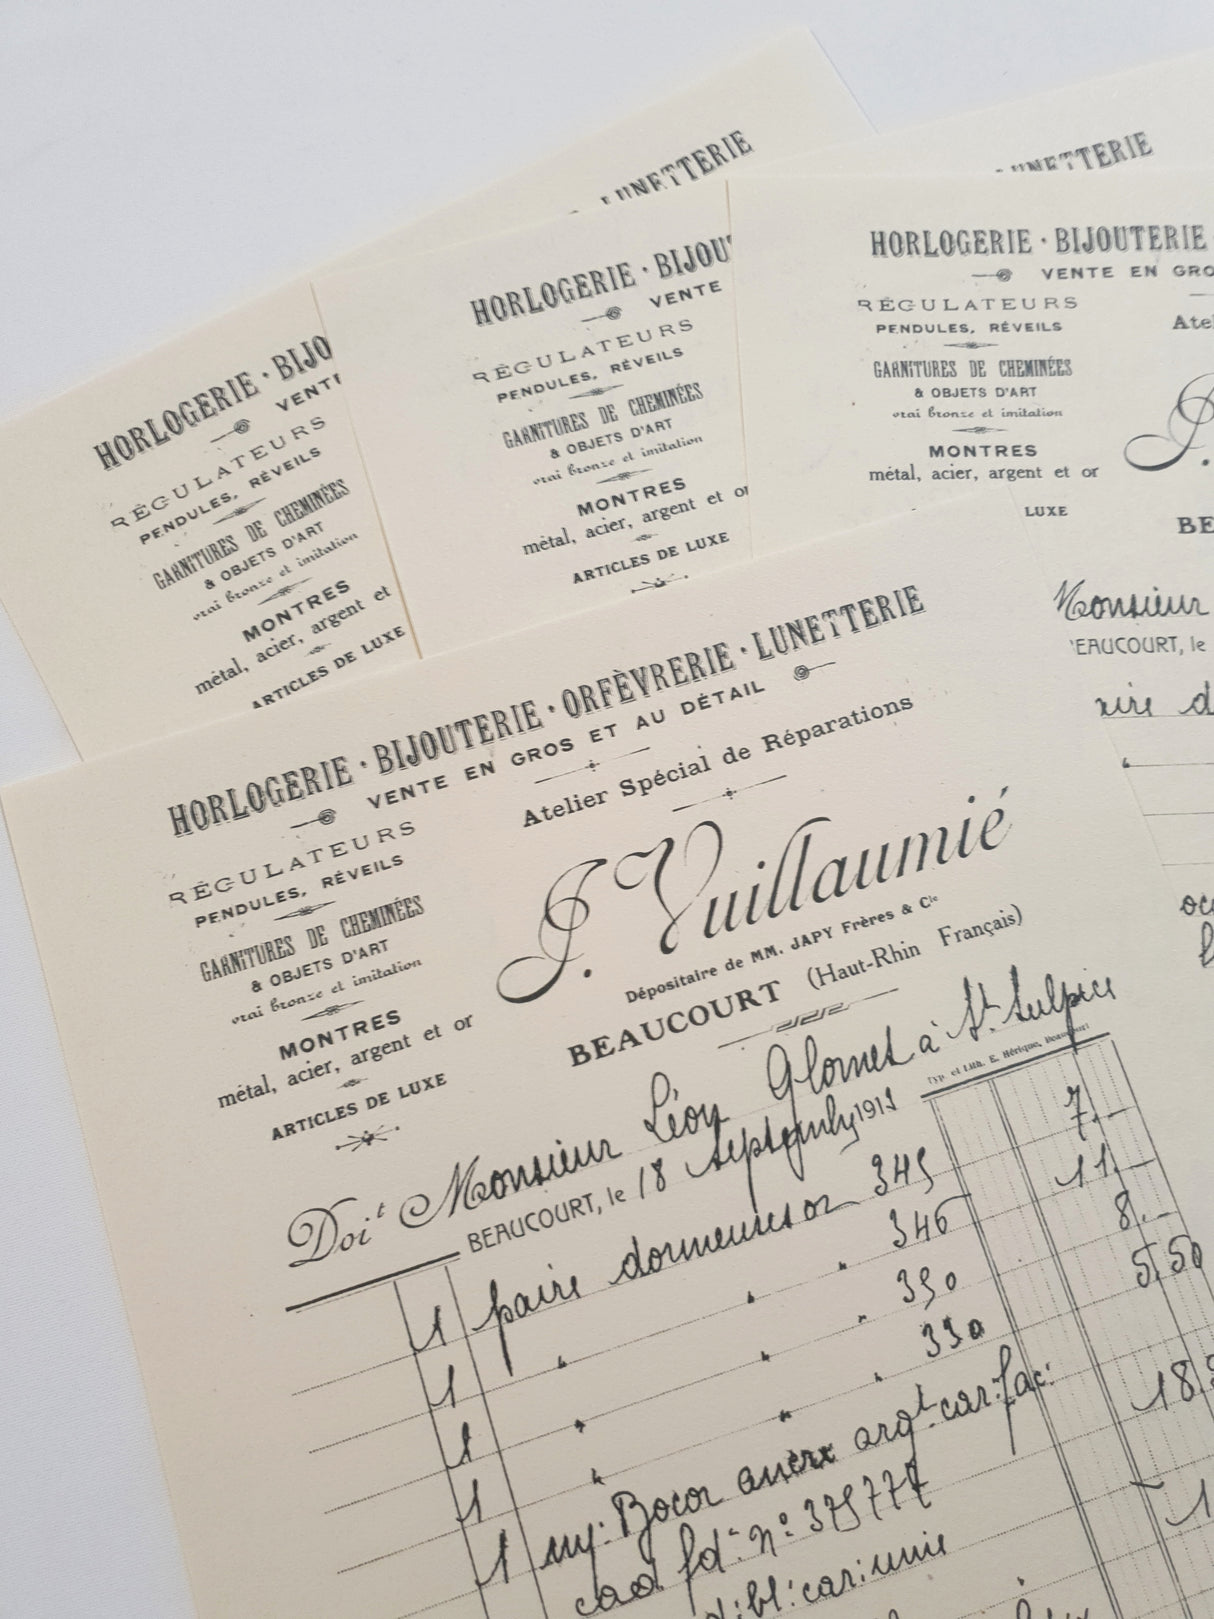 LUNETTERIE
LUNETTERIE
HORLOGERIE · BIJO
VENT
RÉGULATEURS
PENDULES, RÉVEILS
GARNITURES DE CHEMINÉES
& OBJETS D'ART
vrai bronze et imitation
MONTRES
métal, acier, argent et
ARTICLES DE LUXE
HORLOGERIE · BIJOU
VENTE
RÉGULATEURS
PENDULES, RÉVEILS
GARNITURES DE CHEMINÉES
& OBJETS D'ART
vrai bronze et imitation
MONTRES
métal, acier, argent et or
ARTICLES DE LUXE
HORLOGERIE · BIJOUTERIE
VENTE EN GRO
RÉGULATEURS
PENDULES, RÉVEILS
Atel
GARNITURES DE CHEMINÉES
& OBJETS D'ART
vrai bronze et imitation
MONTRES
métal, acier, argent et or
LUXE
BE
Monsieur
BEAUCOURT, le
HORLOGERIE · BIJOUTERIE · ORFÈVRERIE · LUNETTERIE
VENTE EN GROS ET AU DÉTAIL
Atelier Spécial de Réparations
RÉGULATEURS
PENDULES, RÉVEILS
GARNITURES DE CHEMINÉES
& OBJETS D'ART
vrai bronze et imitation
MONTRES
métal, acier, argent et or
ARTICLES DE LUXE
J. Vuillaumié
Dépositaire de MM. JAPY Frères & Cie
BEAUCOURT (Haut-Rhin Français)
Typ. et Lith. E. Hérique, Beaucourt
Doit Monsieur Léon Glomet à St. Sulpice
BEAUCOURT, le 18 191
1 paire dormeuses or 345 7.—
1 " " " 346 11.—
1 " " " 350 8.—
1 " " " 330 5.50
1 argt. car: fac: 18.
fd: n°: 375777
car: unie